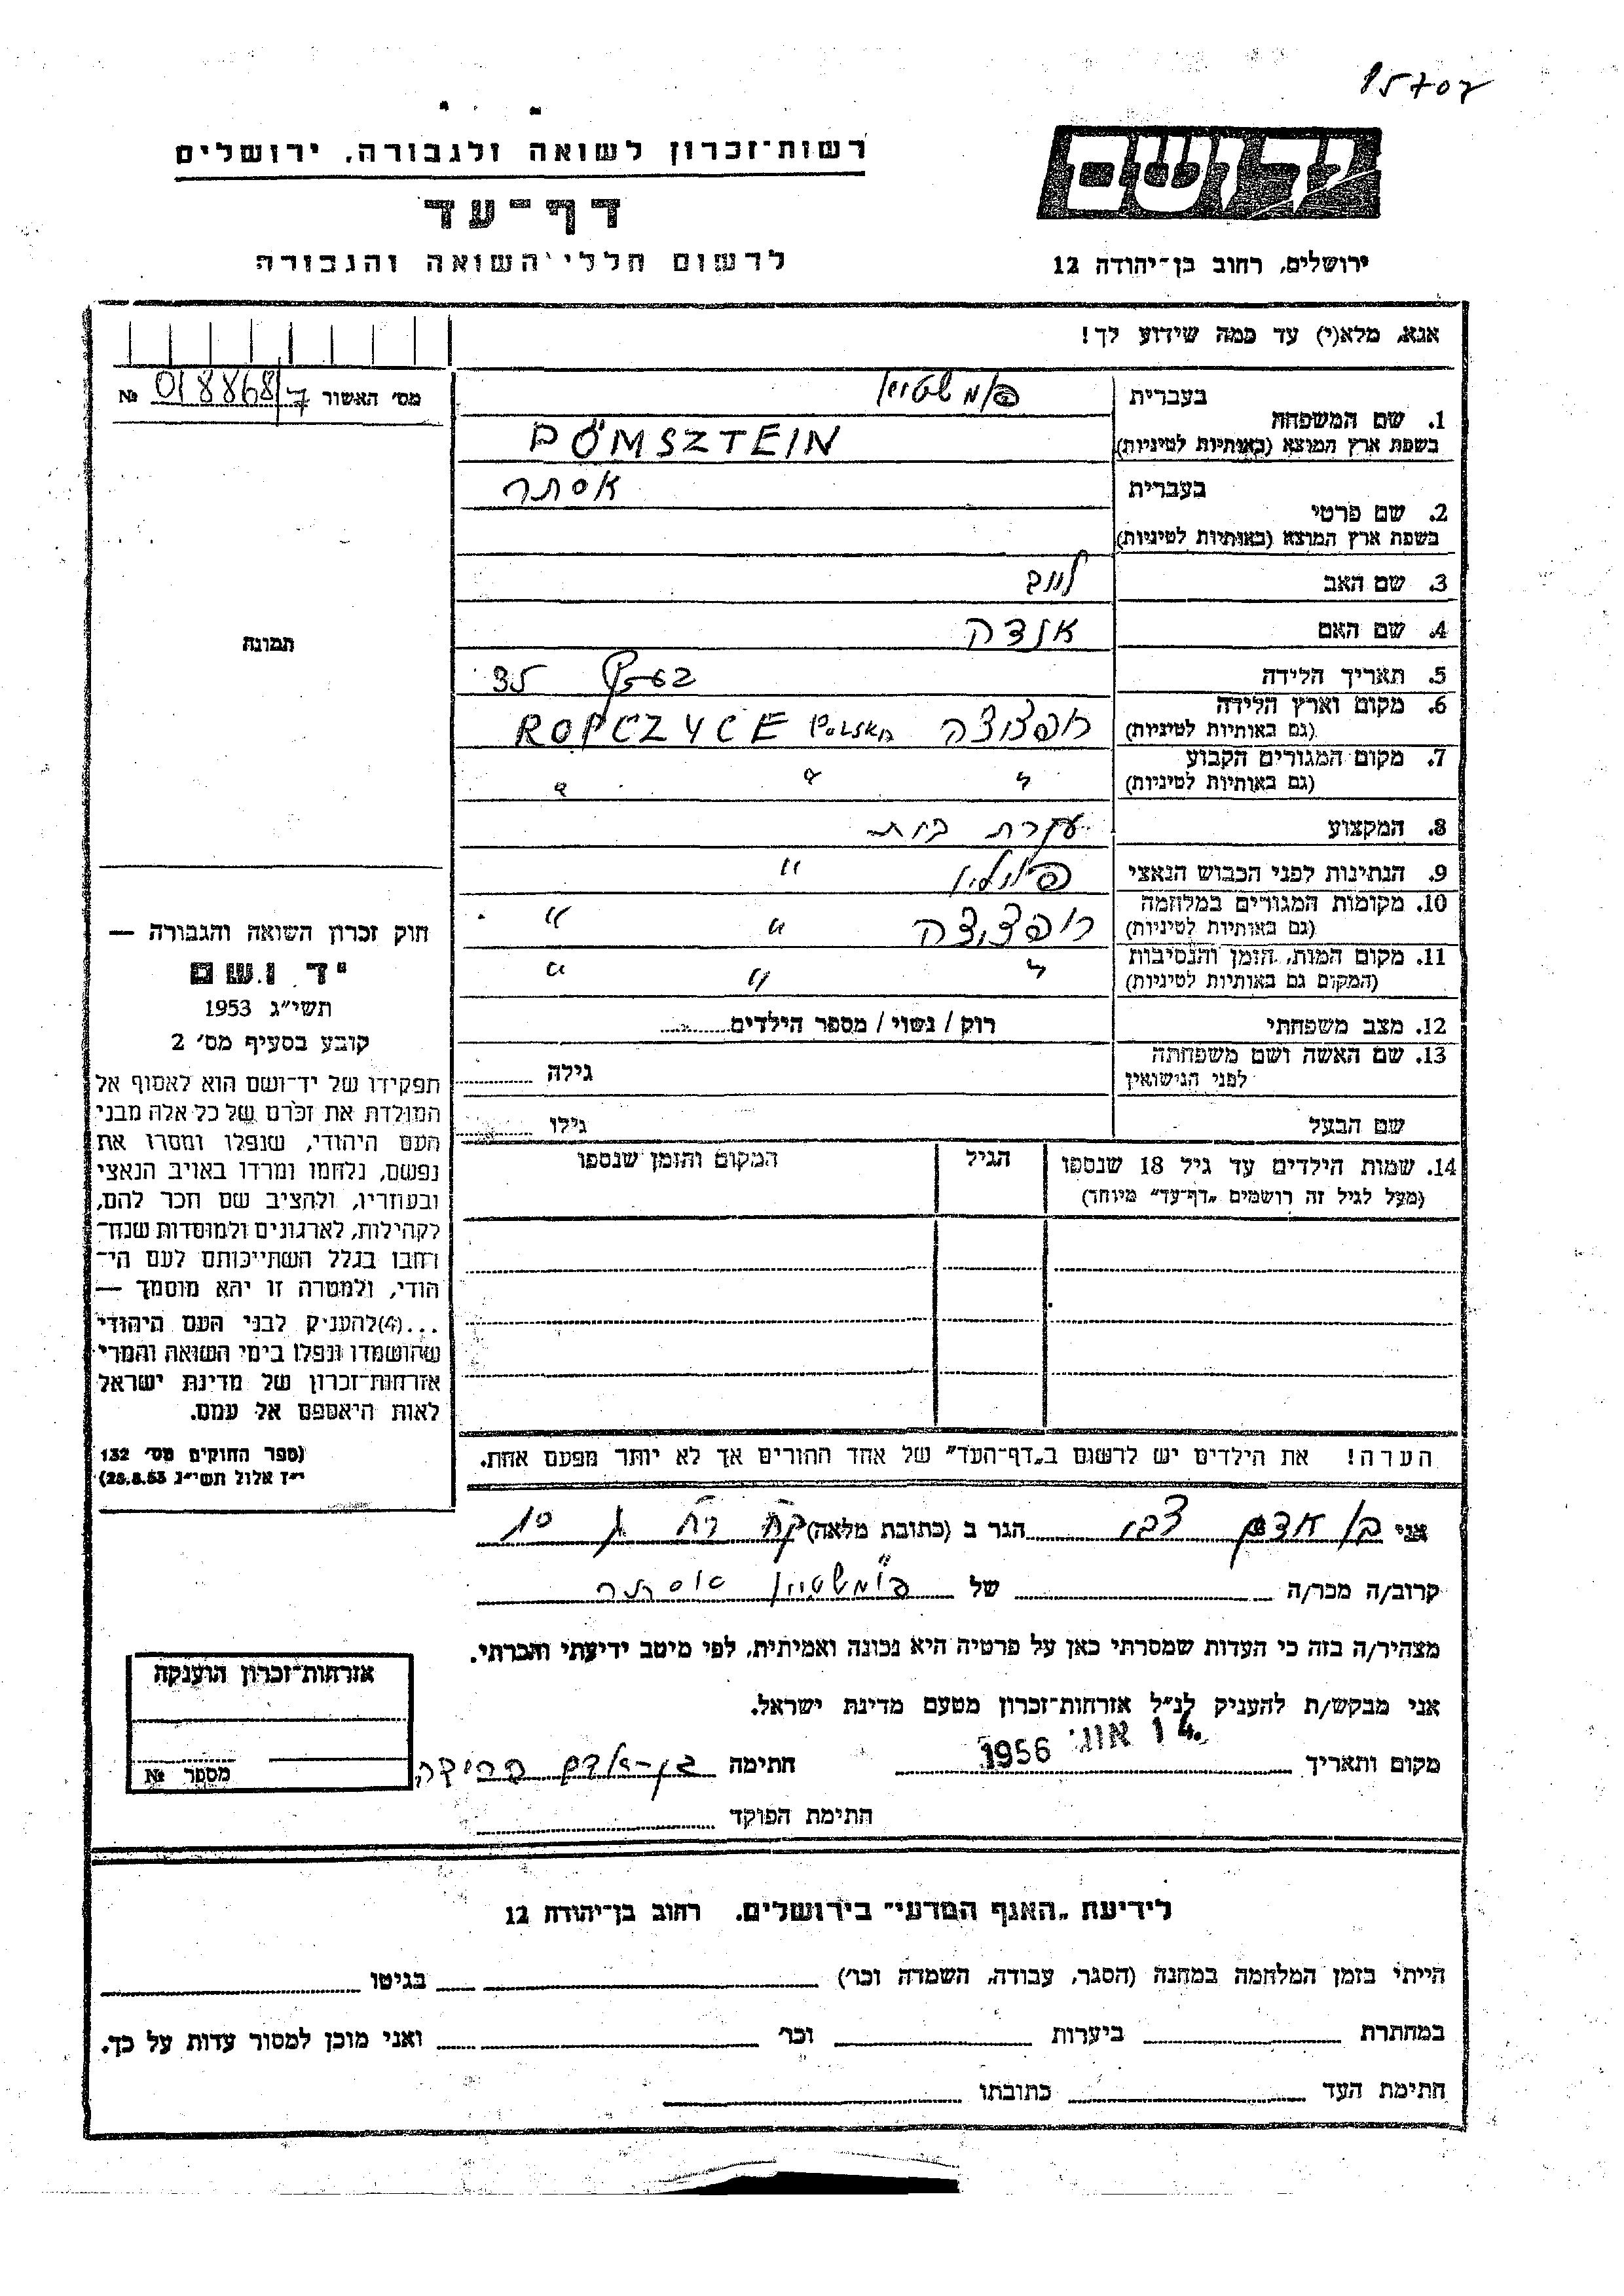 15702
יד ושם
ירושלים, רחוב בן־יהודה 12
רשות־זכרון לשואה ולגבורה, ירושלים
דף־עד
לרשום חללי השואה והגבורה
אנא, מלא(י) עד כמה שידוע לך!
מס׳ האשור 018868/7 №
1. שם המשפחה
בעברית פומשטיין
בשפת ארץ המוצא (באותיות לטיניות) PÖMSZTEIN
2. שם פרטי
בעברית אסתר
בשפת ארץ המוצא (באותיות לטיניות)
3. שם האב
4. שם האם
5. תאריך הלידה 35
6. מקום וארץ הלידה
(גם באותיות לטיניות) רופצ'צה POLSKA ROPCZYCE
7. מקום המגורים הקבוע
(גם באותיות לטיניות) " " "
8. המקצוע עקרת בית
9. הנתינות לפני הכבוש הנאצי פולין "
10. מקומות המגורים במלחמה
(גם באותיות לטיניות) רופצ'צה " "
11. מקום המות, הזמן והנסיבות
(המקום גם באותיות לטיניות) " " "
12. מצב משפחתי רוק / נשוי / מספר הילדים
13. שם האשה ושם משפחתה
לפני הנישואין גילה
שם הבעל גילו
14. שמות הילדים עד גיל 18 שנספו הגיל המקום והזמן שנספו
(מעל לגיל זה רושמים „דף־עד" מיוחד)
הערה! את הילדים יש לרשום ב„דף־העד" של אחד ההורים אך לא יותר מפעם אחת.
תמונה
חוק זכרון השואה והגבורה —
יד ושם
תשי״ג 1953
קובע בסעיף מס׳ 2
תפקידו של יד־ושם הוא לאסוף אל
המולדת את זכרם של כל אלה מבני
העם היהודי, שנפלו ומסרו את
נפשם, נלחמו ומרדו באויב הנאצי
ובעוזריו, ולהציב שם וזכר להם,
לקהילות, לארגונים ולמוסדות שנח־
רבו בגלל השתייכותם לעם הי־
הודי, ולמטרה זו יהא מוסמך —
...(4)להעניק לבני העם היהודי
שהושמדו ונפלו בימי השואה והמרי
אזרחות־זכרון של מדינת ישראל
לאות היאספם אל עמם.
(ספר החוקים מס׳ 132
י״ז אלול תשי״ג 28.8.53)
אני בן אדם הגר ב (כתובת מלאה)
קרוב/ה מכר/ה של פומשטיין אסתר
מצהיר/ה בזה כי העדות שמסרתי כאן על פרטיה היא נכונה ואמיתית, לפי מיטב ידיעתי והכרתי.
אני מבקש/ת להעניק לנ״ל אזרחות־זכרון מטעם מדינת ישראל.
מקום ותאריך 14 אוג׳ 1956 חתימה בן-אדם
חתימת הפוקד
אזרחות־זכרון הוענקה
מספר №
לידיעת „האגף המדעי" בירושלים, רחוב בן־יהודה 12
הייתי בזמן המלחמה במחנה (הסגר, עבודה, השמדה וכו׳) בגיטו
במחתרת ביערות וכו׳ ואני מוכן למסור עדות על כך.
חתימת העד כתובתו